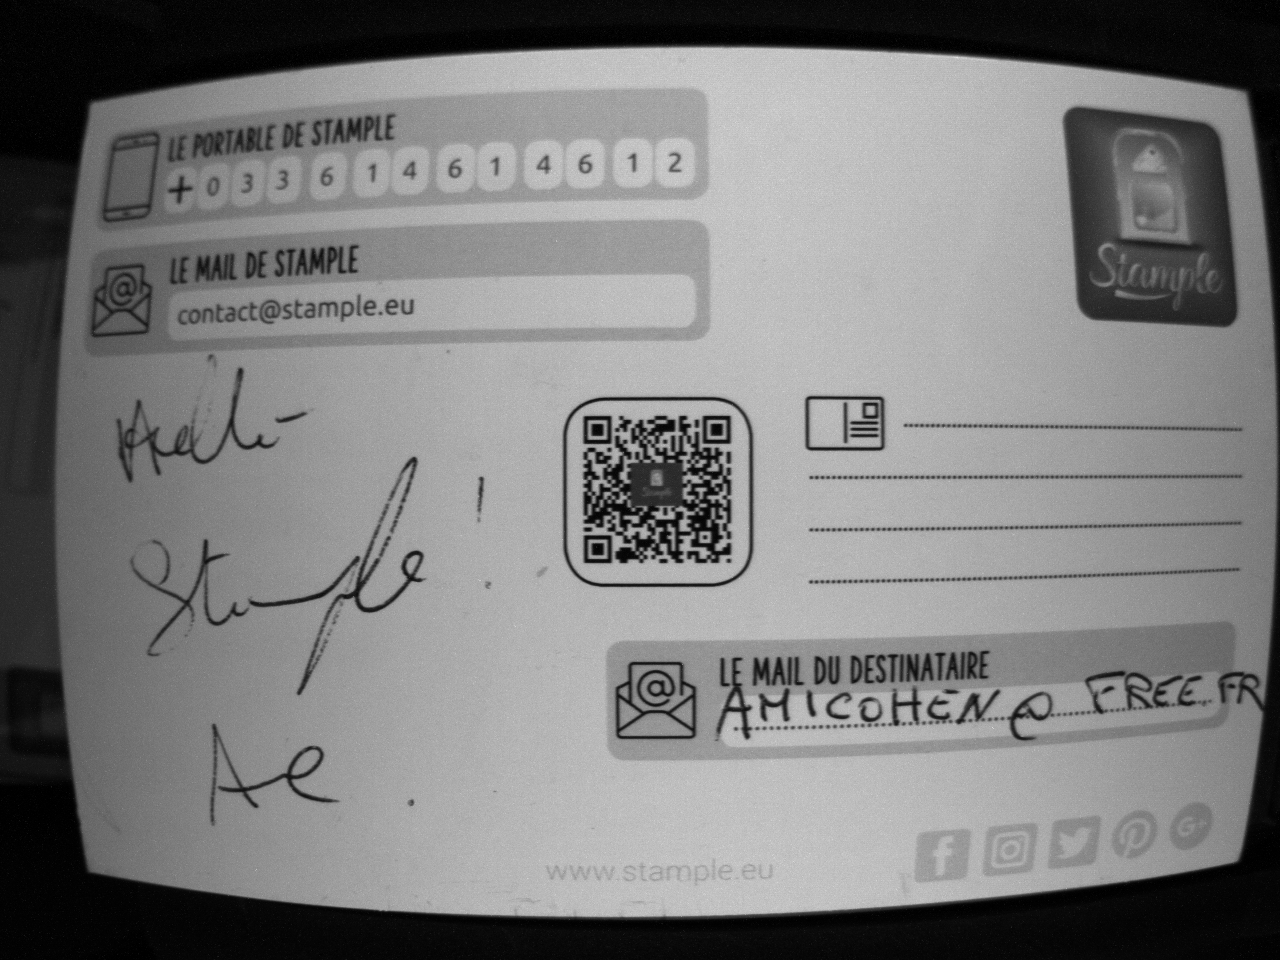 LE PORTABLE DE STAMPLE
+ 0 3 3 6 1 4 6 1 4 6 1 2
LE MAIL DE STAMPLE
contact@stample.eu
Stample
Hello
Stample !
Stample
LE MAIL DU DESTINATAIRE
AMICOHEN@FREE.FR
www.stample.eu